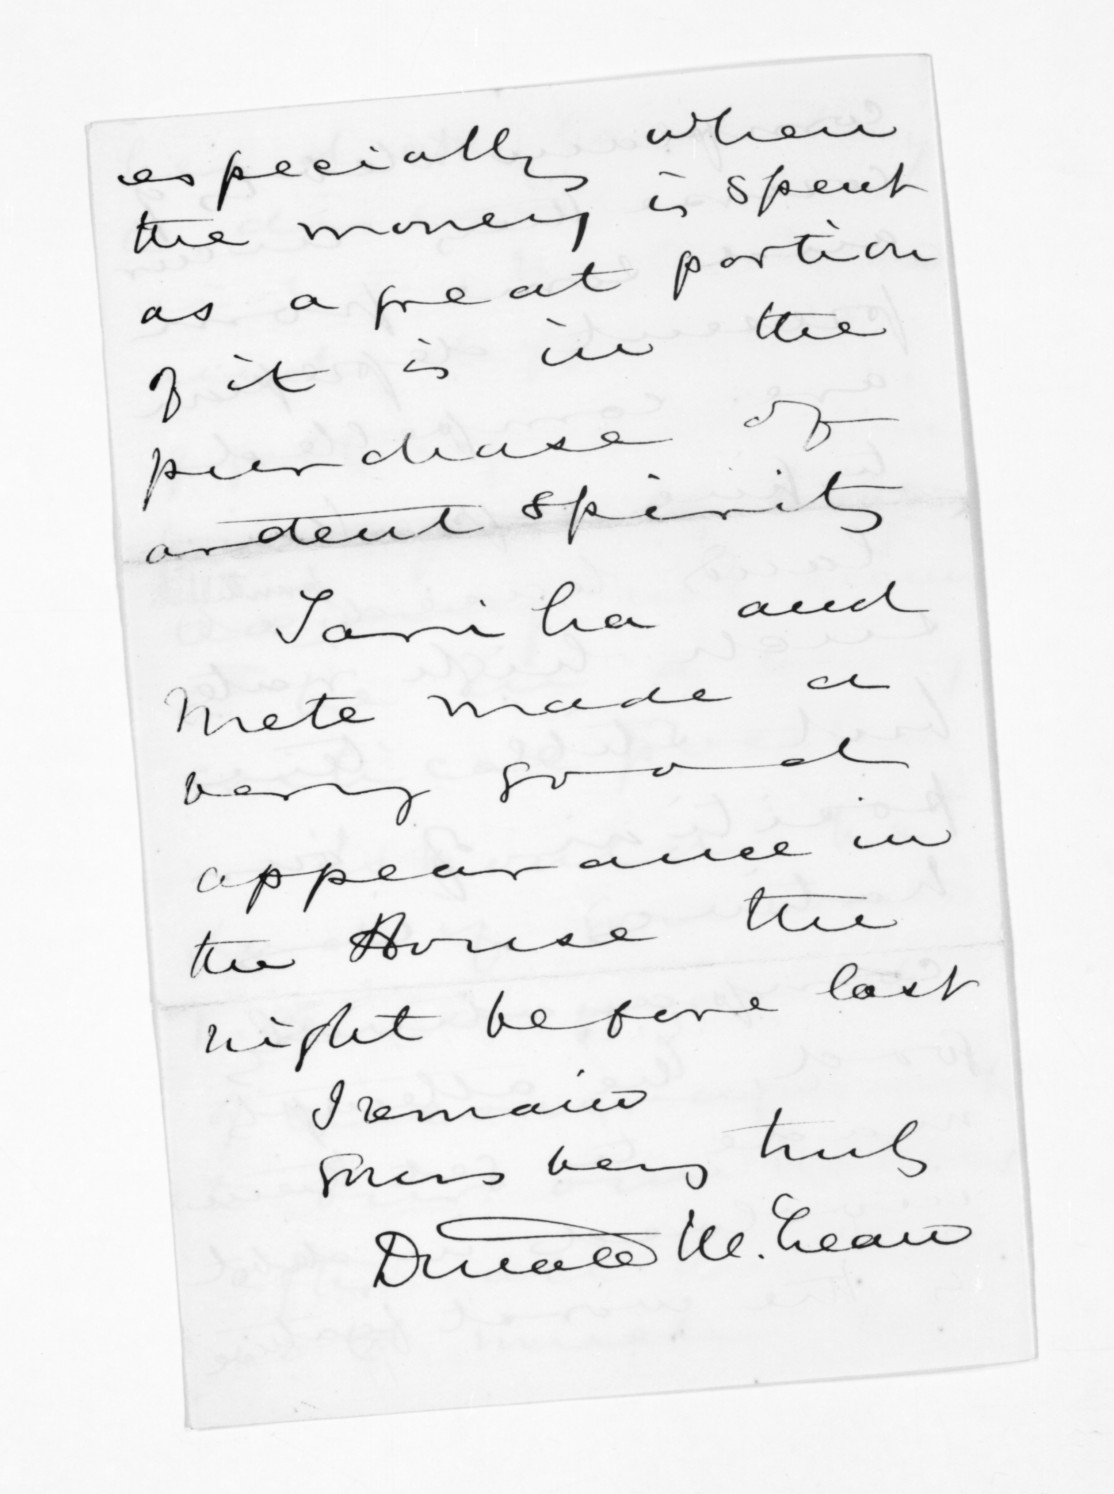 especially when
the money is spent
as a great portion
of it is in the
purchase of
ardent spirits
Tariha and
Mete made a
very good
appearance in
the House the
night before last
I remain
Yours very truly
Donald McLean